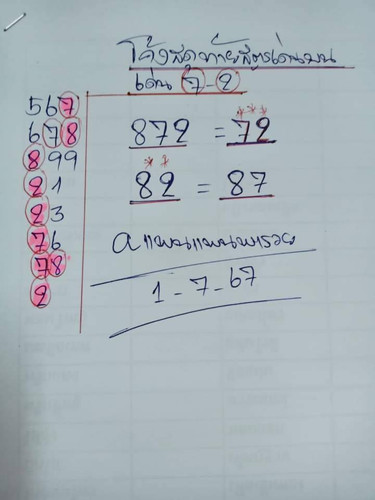 โค้งสุดท้ายสูตรเด่นบน
เด่น 7-2
567
678
899
21
23
76
78
2
872 = 72
82 = 87
1-7-67